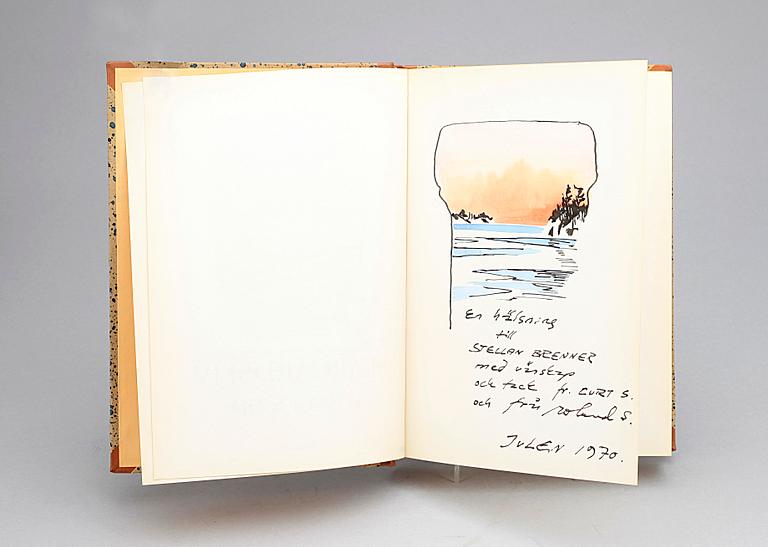 En hälsning
till
STELLAN BRENNER
med vänskap
och tack fr. CURT S.
och från Roland S.
JULEN 1970.